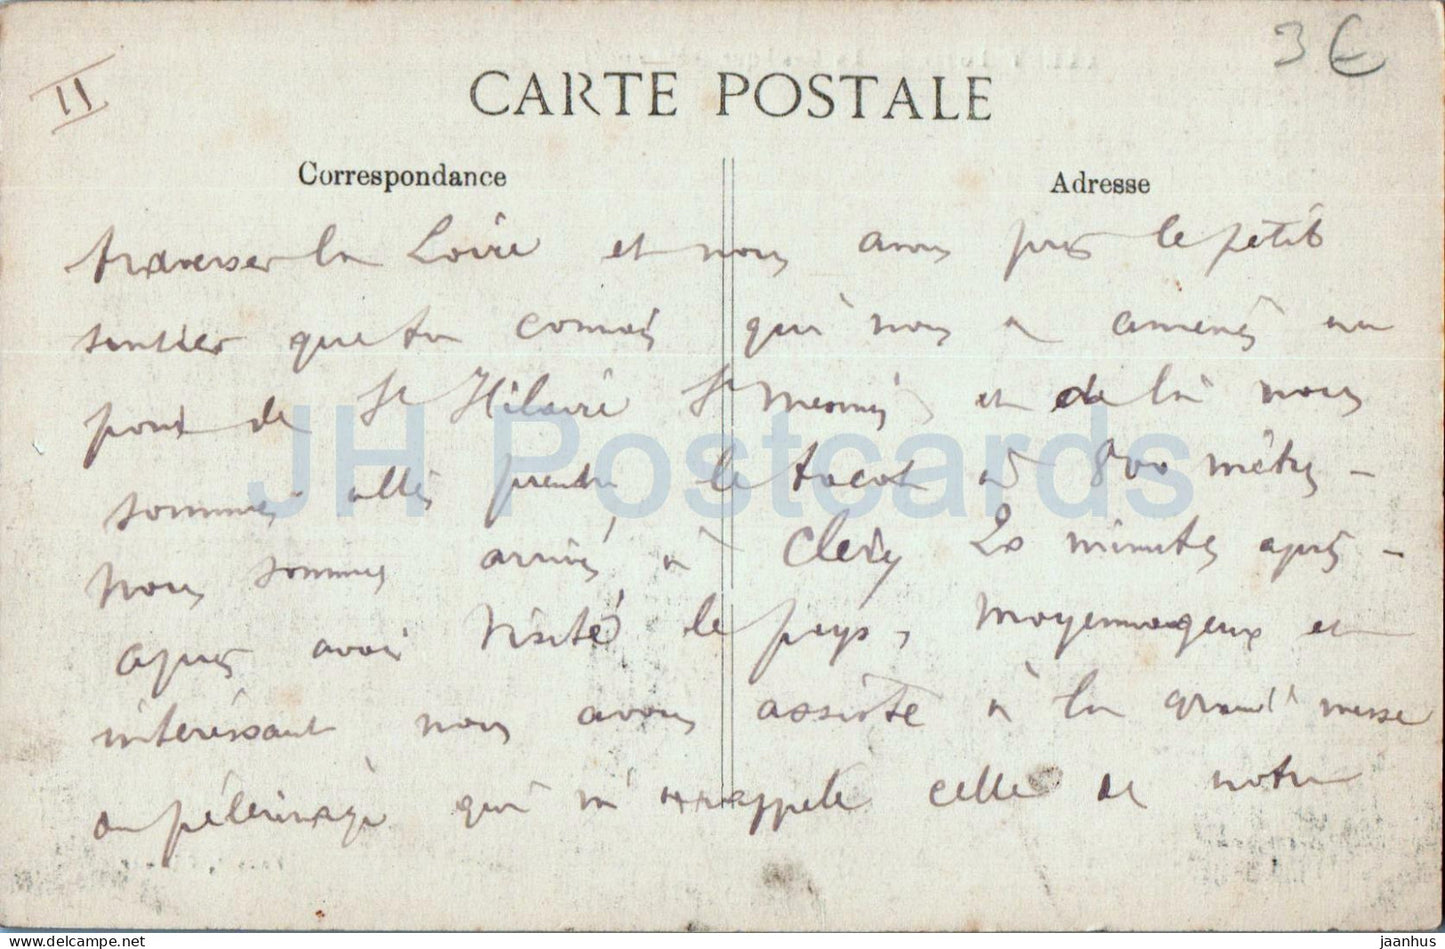 II
3 €
CARTE POSTALE
Correspondance
Adresse
traverser la Loire et nous avons pris le petit
sentier que tu connais qui nous a amenés au
pont de St Hilaire St Mesmin et de là nous
sommes allés prendre le tacot à 800 mètres -
Nous sommes arrivés à Clery 20 minutes après -
après avoir visité le pays, moyennageux et
intéressant nous avons assisté à la grand'messe
du pélerinage qui m'rappele celle de notre
JH Postcards
delcampe.net
jaanhus